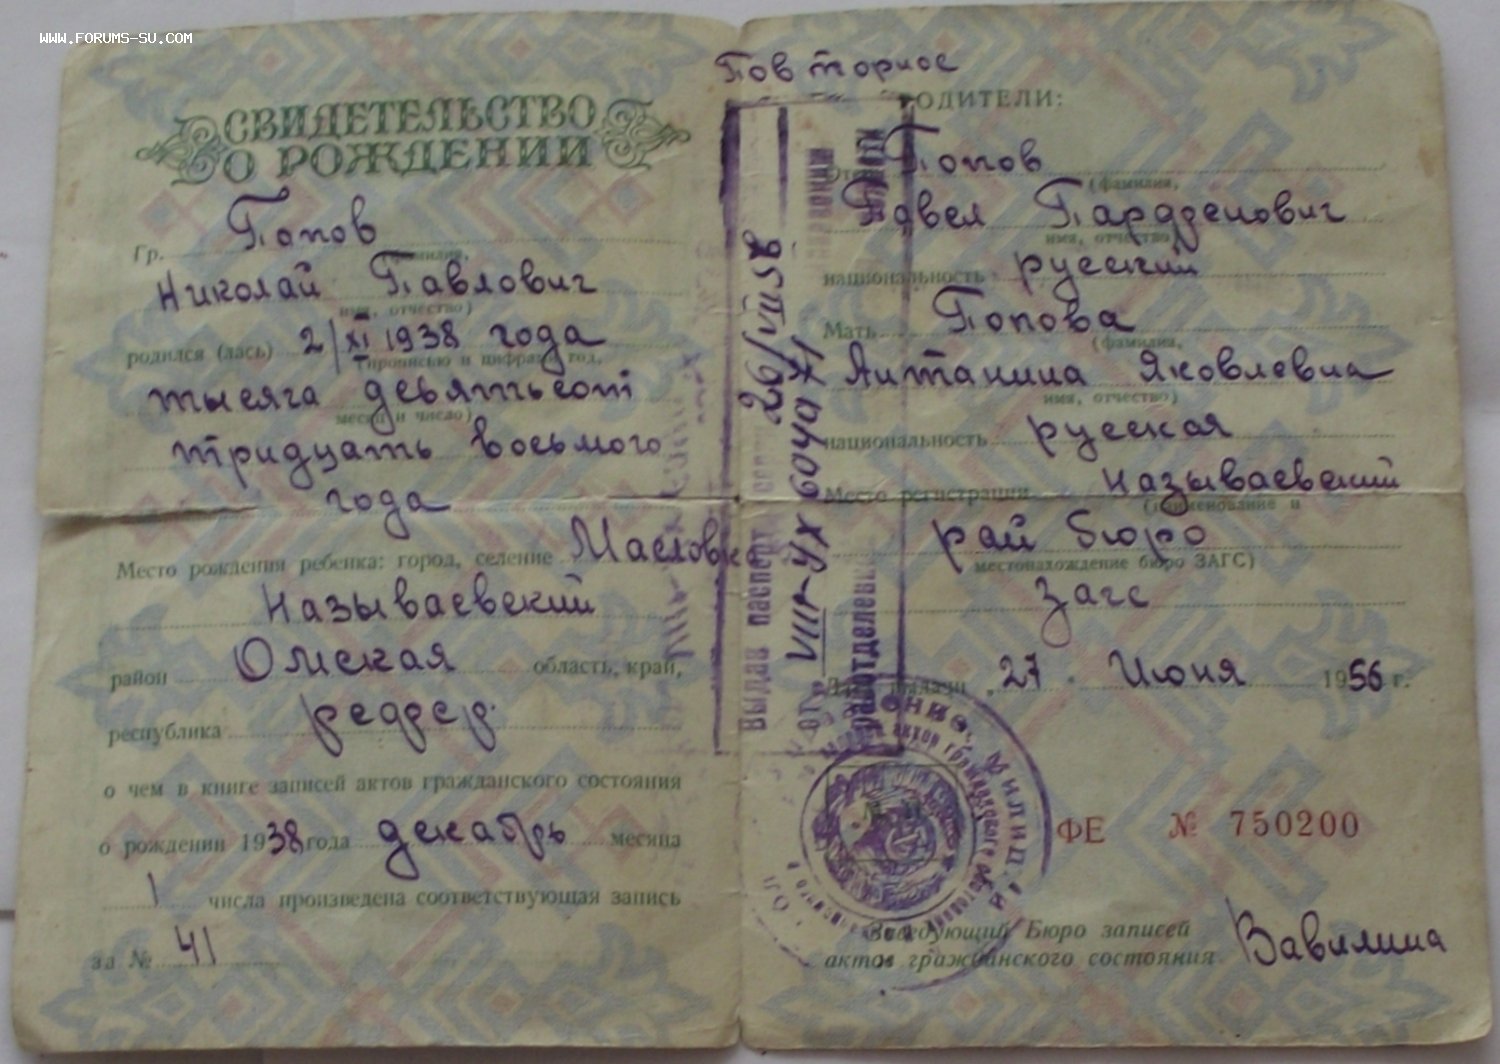 www.forums-su.com
СВИДЕТЕЛЬСТВО
О РОЖДЕНИИ
Гр. Попов
фамилия,
Николай Павлович
имя, отчество)
родился (лась) 2/XI 1938 года
(прописью и цифрами год,
тысяга девятьсот
месяц и число)
тридцать восьмого
года
Место рождения ребенка: город, селение Масловка
Называевский
район Омская область, край,
республика рсфср.
о чем в книге записей актов гражданского состояния
о рождении 1938 года декабрь месяца
1 числа произведена соответствующая запись
за № 41
Повторное
РОДИТЕЛИ:
Отец Попов
(фамилия,
Павел Парфенович
имя, отчество)
национальность русский
Мать Попова
(фамилия,
Антанина Яковлевна
имя, отчество)
национальность русская
Место регистрации Называевский
(наименование и
рай бюро
местонахождение бюро ЗАГС)
загс
Дата выдачи „27" Июня 1956 г.
ФЕ № 750200
Заведующий Бюро записей
актов гражданского состояния Вавилина
Выдан паспорт
VIII-УХ